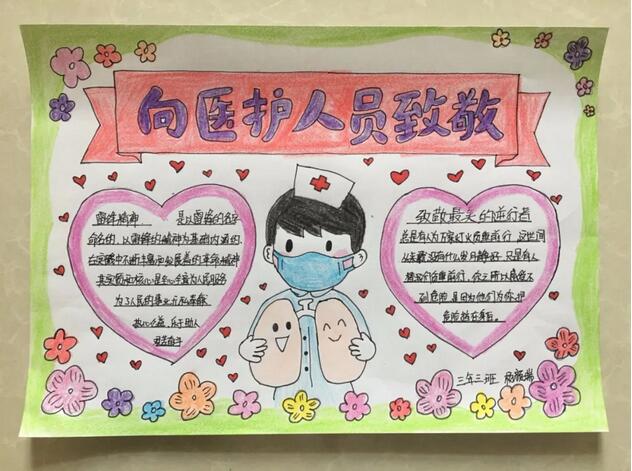 向医护人员致敬
雷锋精神 是以雷锋的名字
命名的,以雷锋的精神为基础内涵的、
在实践中不断丰富和发展着的革命精神
其实质和核心是全心全意为人民服务
为了人民的事业无私奉献
热心公益,乐于助人
见义勇为
致敬最美的逆行者
总是有人为万家灯火负重前行,这世间
从来没有什么岁月静好,只是有人
替我们负重前行,你之所以感受不
到危险,是因为他们为你把
危险挡在身后。
三年三班